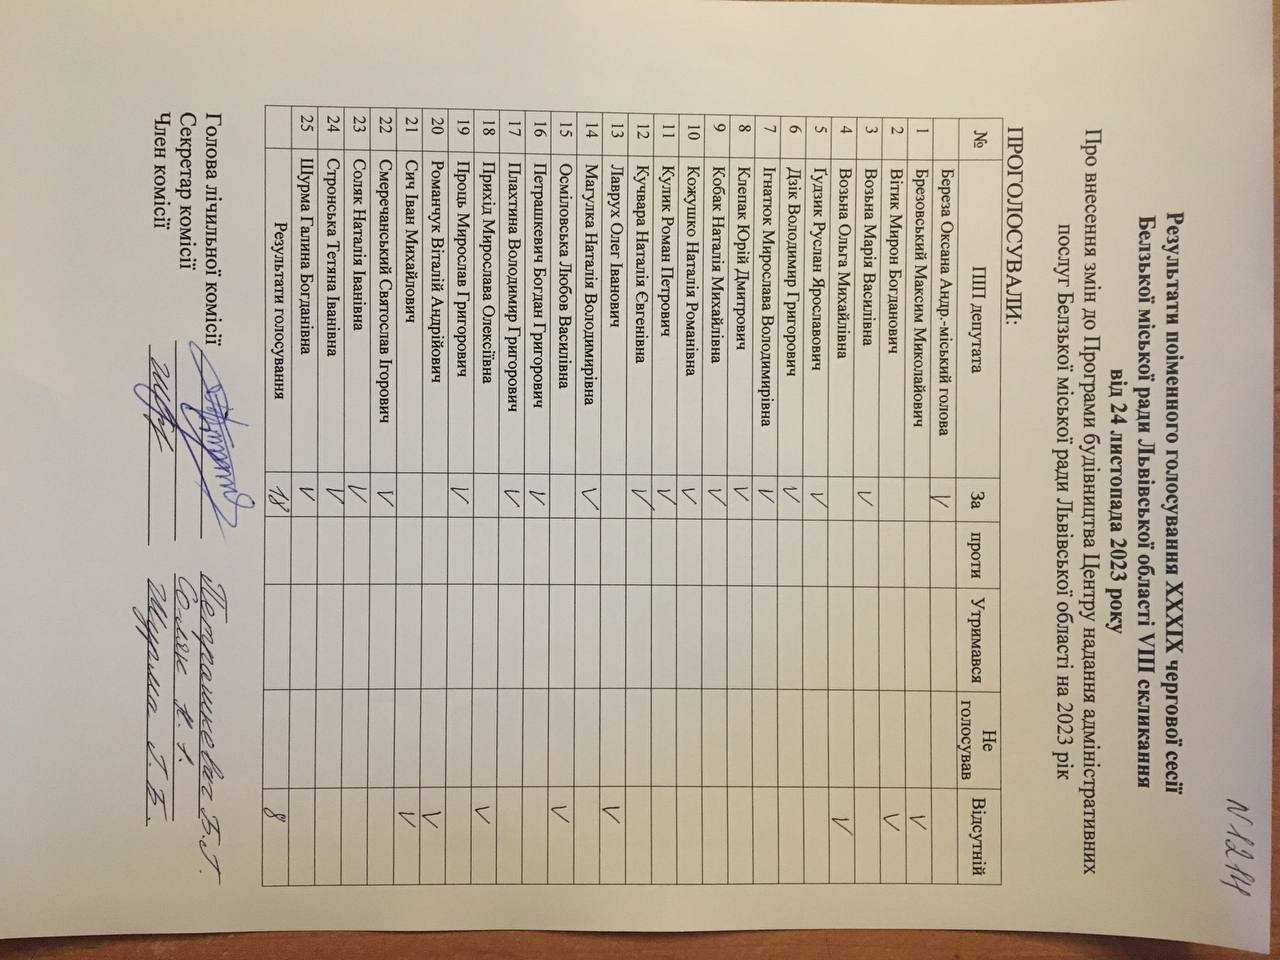 N 1214
Результати поіменного голосування XXXIX чергової сесії
Белзької міської ради Львівської області VIII скликання
від 24 листопада 2023 року
Про внесення змін до Програми будівництва Центру надання адміністративних
послуг Белзької міської ради Львівської області на 2023 рік
ПРОГОЛОСУВАЛИ:
№ ПІП депутата За проти Утримався Не голосував Відсутній
Береза Оксана Андр.-міський голова V
1 Брезовський Максим Миколайович V
2 Вітик Мирон Богданович V
3 Возьна Марія Василівна V
4 Возьна Ольга Михайлівна V
5 Ґудзик Руслан Ярославович V
6 Дзік Володимир Григорович V
7 Ігнатюк Мирослава Володимирівна V
8 Клепак Юрій Дмитрович V
9 Кобак Наталія Михайлівна V
10 Кожушко Наталія Романівна V
11 Кулик Роман Петрович V
12 Кучвара Наталія Євгенівна V
13 Лаврух Олег Іванович V
14 Магулка Наталія Володимирівна V
15 Осміловська Любов Василівна V
16 Петрашкевич Богдан Григорович V
17 Плахтина Володимир Григорович V
18 Прихід Мирослава Олексіївна V
19 Проць Мирослав Григорович V
20 Романчук Віталій Андрійович V
21 Сич Іван Михайлович V
22 Смеречанський Святослав Ігорович V
23 Соляк Наталія Іванівна V
24 Стронська Тетяна Іванівна V
25 Шурма Галина Богданівна V
Результати голосування 18 8
Голова лічильної комісії Петрашкевич Б.Г.
Секретар комісії Соляк Н. І.
Член комісії Шурма Г. Б.